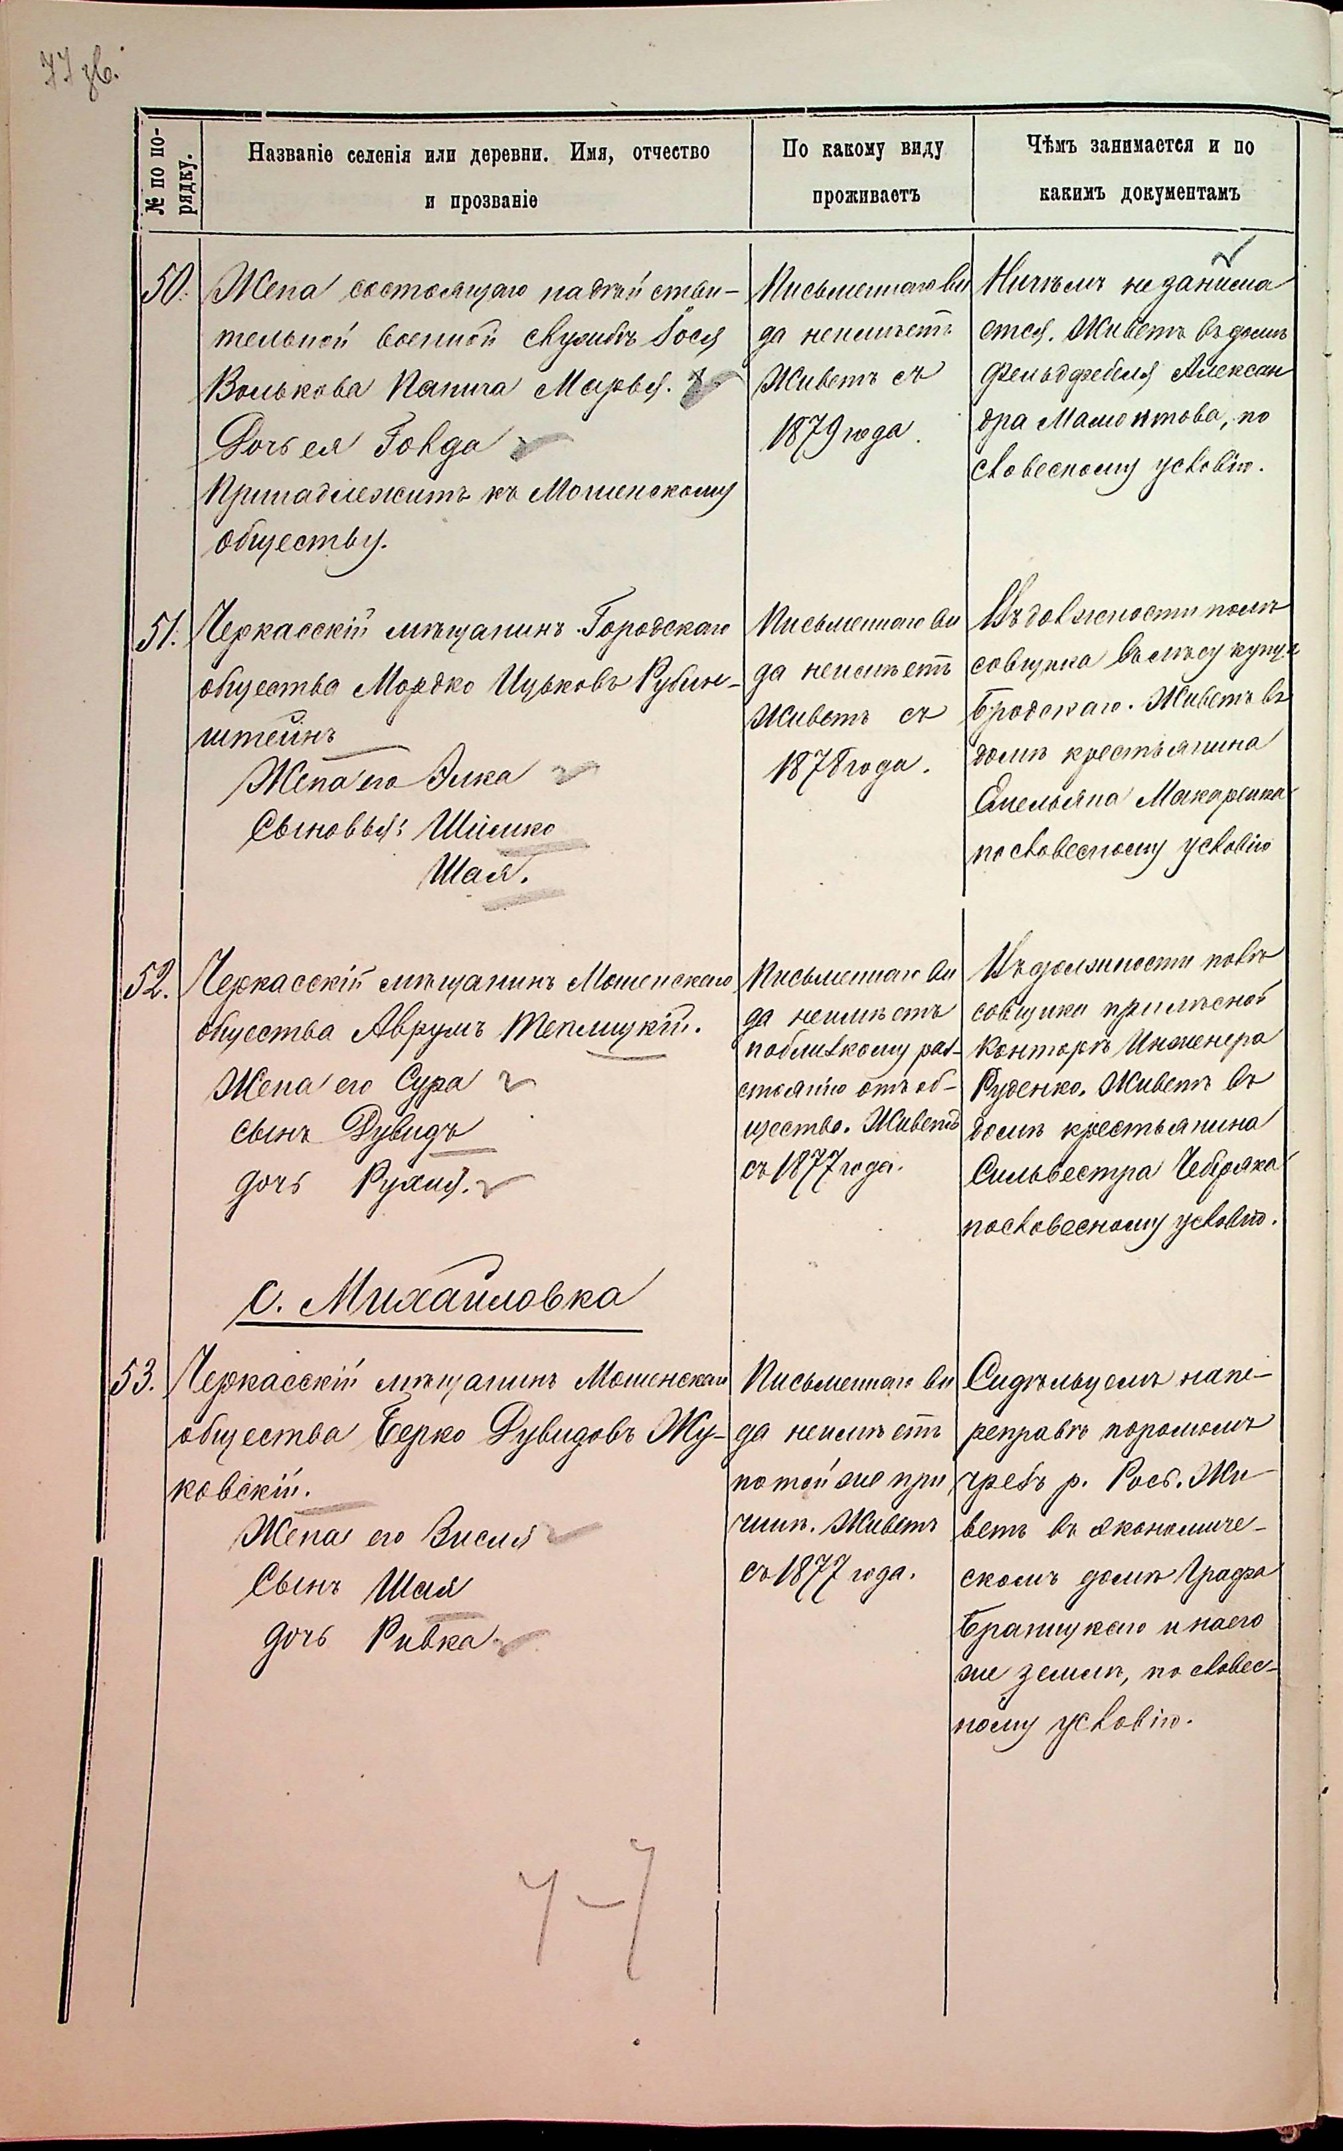 77 зв.
№ по по-
рядку.
Названіе селенія или деревни. Имя, отчество
и прозваніе
По какому виду
проживаетъ
Чѣмъ занимается и по
какимъ документамъ
50.
Жена состоящаго на дѣйстви-
тельной военной службѣ Іося
Волькова Папича Марья.
Дочь ея Говда
Принадлежитъ къ Мошенскому
обществу.
Письменнаго ви
да неимѣетъ
Живетъ съ
1879 года.
Ничѣмъ не занима
ется. Живетъ въ домѣ
фельдфебеля Алексан
дра Мамонтова, по
словесному условію.
51.
Черкасскій мѣщанинъ Городскаго
общества Мордко Ицьковъ Рубин-
штейнъ
Жена его Элка
Сыновья: Шимко
Шая.
Письменнаго ви
да неимѣетъ
Живетъ съ
1878 года.
Въ должности
совщика въ лѣсу купца
Бродскаго. Живетъ въ
домѣ крестьянина
Емельяна Макаренка
по словесному условію
52.
Черкасскій мѣщанинъ Мошенскаго
общества Аврумъ Теплицкій.
Жена его Сура
сынъ Дувидъ
дочь Рухля.
Письменнаго ви
да неимѣетъ
по близкому раз-
стоянію отъ об-
щества. Живетъ
съ 1877 года.
Въ должности
совщика при лѣсной
Конторѣ Инженера
Руденко. Живетъ въ
домѣ крестьянина
Сильвестра Чебряка
по словесному условію.
с. Михайловка
53.
Черкасскій мѣщанинъ Мошенскаго
общества Берко Дувидовъ Жу-
ковскій.
Жена его Зисля
Сынъ Шая
дочь Ривка
Письменнаго ви
да неимѣетъ
по той же при
чинѣ. Живетъ
съ 1877 года.
Сидѣльцемъ на пе-
реправѣ паромомъ
чрезъ р. Рось. Жи-
ветъ въ экономиче-
скомъ домѣ Графа
Браницкаго и на его
же землѣ, по словес-
ному условію.
7-7